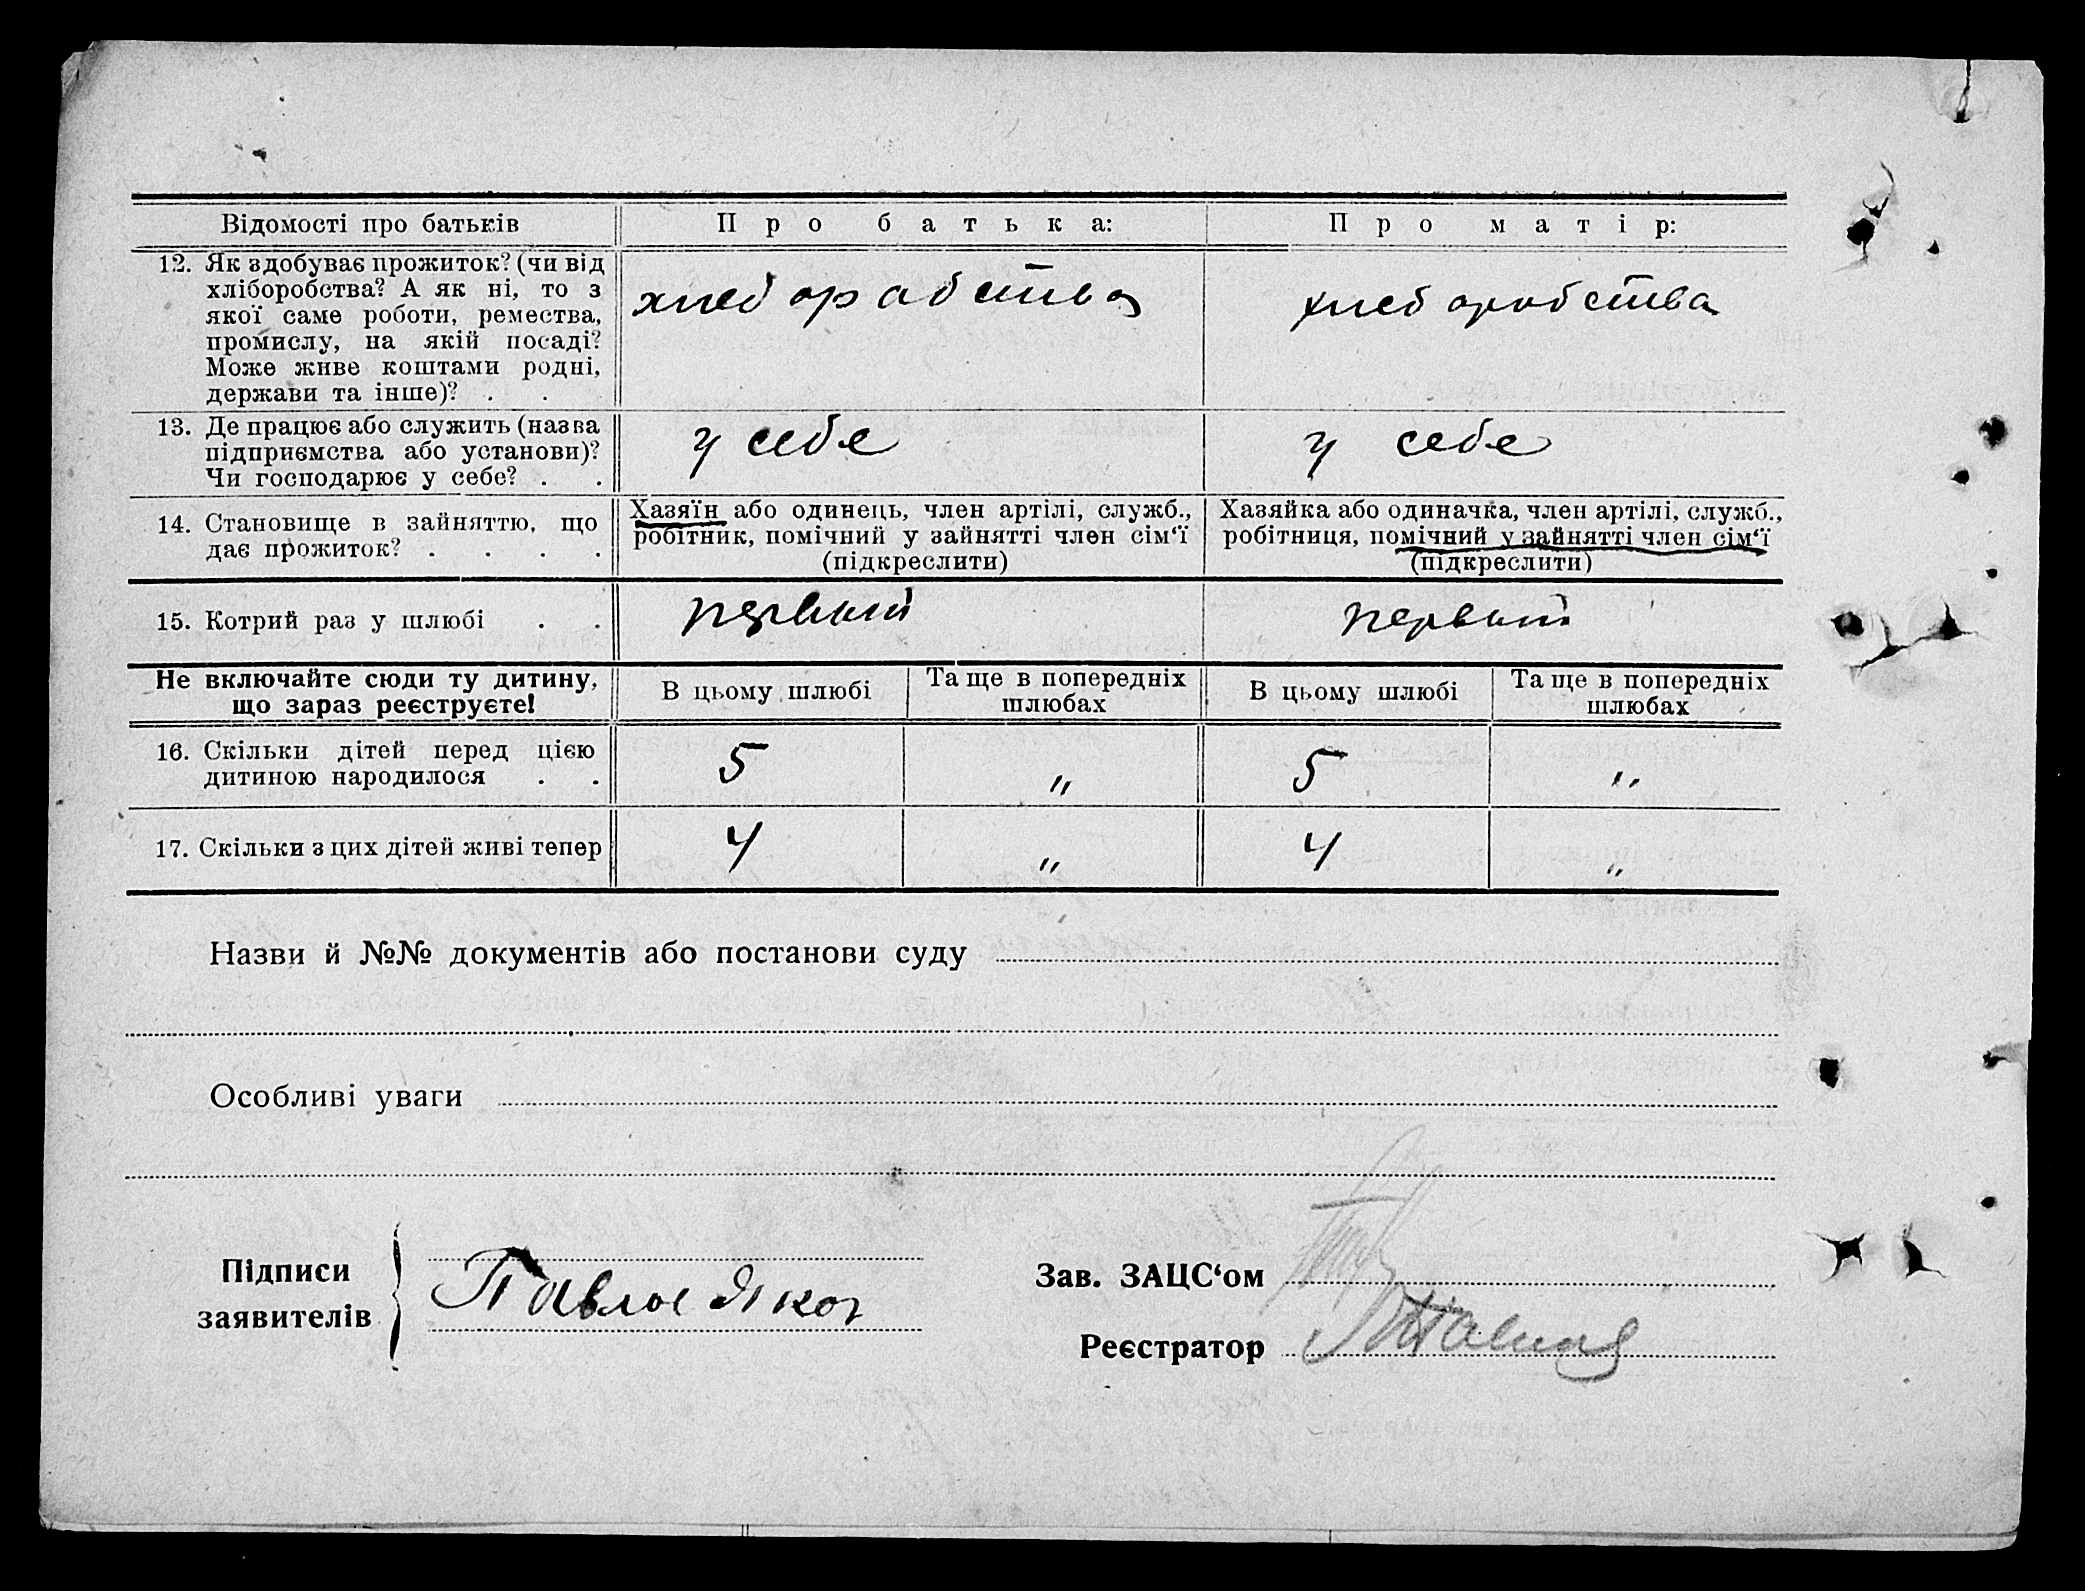 Відомості про батьків
Про батька:
Про матір:
12. Як здобуває прожиток? (чи від
хліборобства? А як ні, то з
якої саме роботи, ремества,
промислу, на якій посаді?
Може живе коштами родні,
держави та інше)? . .
хлеборабства
хлеборобства
13. Де працює або служить (назва
підприємства або установи)?
Чи господарює у себе? . .
у себе
у себе
14. Становище в зайняттю, що
дає прожиток? . . . .
Хазяїн або одинець, член артілі, служб.,
робітник, помічний у зайнятті член сім‘ї
(підкреслити)
Хазяйка або одиначка, член артілі, служб.,
робітниця, помічний у зайнятті член сім‘ї
(підкреслити)
15. Котрий раз у шлюбі . .
первый
первый
Не включайте сюди ту дитину,
що зараз реєструєте!
В цьому шлюбі
Та ще в попередніх
шлюбах
В цьому шлюбі
Та ще в попередніх
шлюбах
16. Скільки дітей перед цією
дитиною народилося . .
5
"
5
"
17. Скільки з цих дітей живі тепер
4
"
4
"
Назви й №№ документів або постанови суду
Особливі уваги
Підписи
заявителів
Зав. ЗАЦС‘ом
Реєстратор